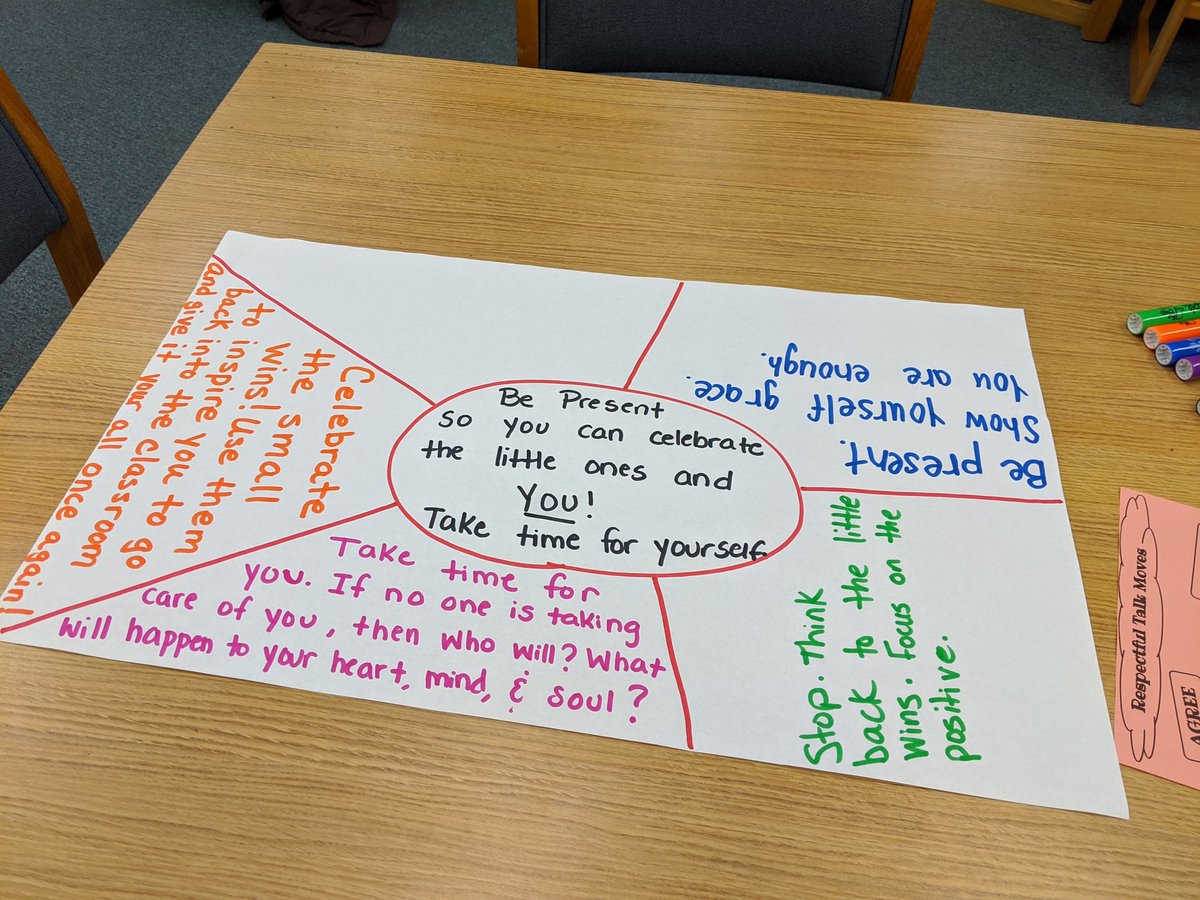 Be Present
so you can celebrate
the little ones and
You!
Take time for yourself.
Celebrate
the small
wins! Use them
to inspire you to go
back into the classroom
and give it your all once again!
Be present.
Show yourself grace.
You are enough.
Stop. Think
back to the little
wins. Focus on the
positive.
Take time for
you. If no one is taking
care of you, then who will? What
will happen to your heart, mind, & soul?
Respectful Talk Moves
AGREE